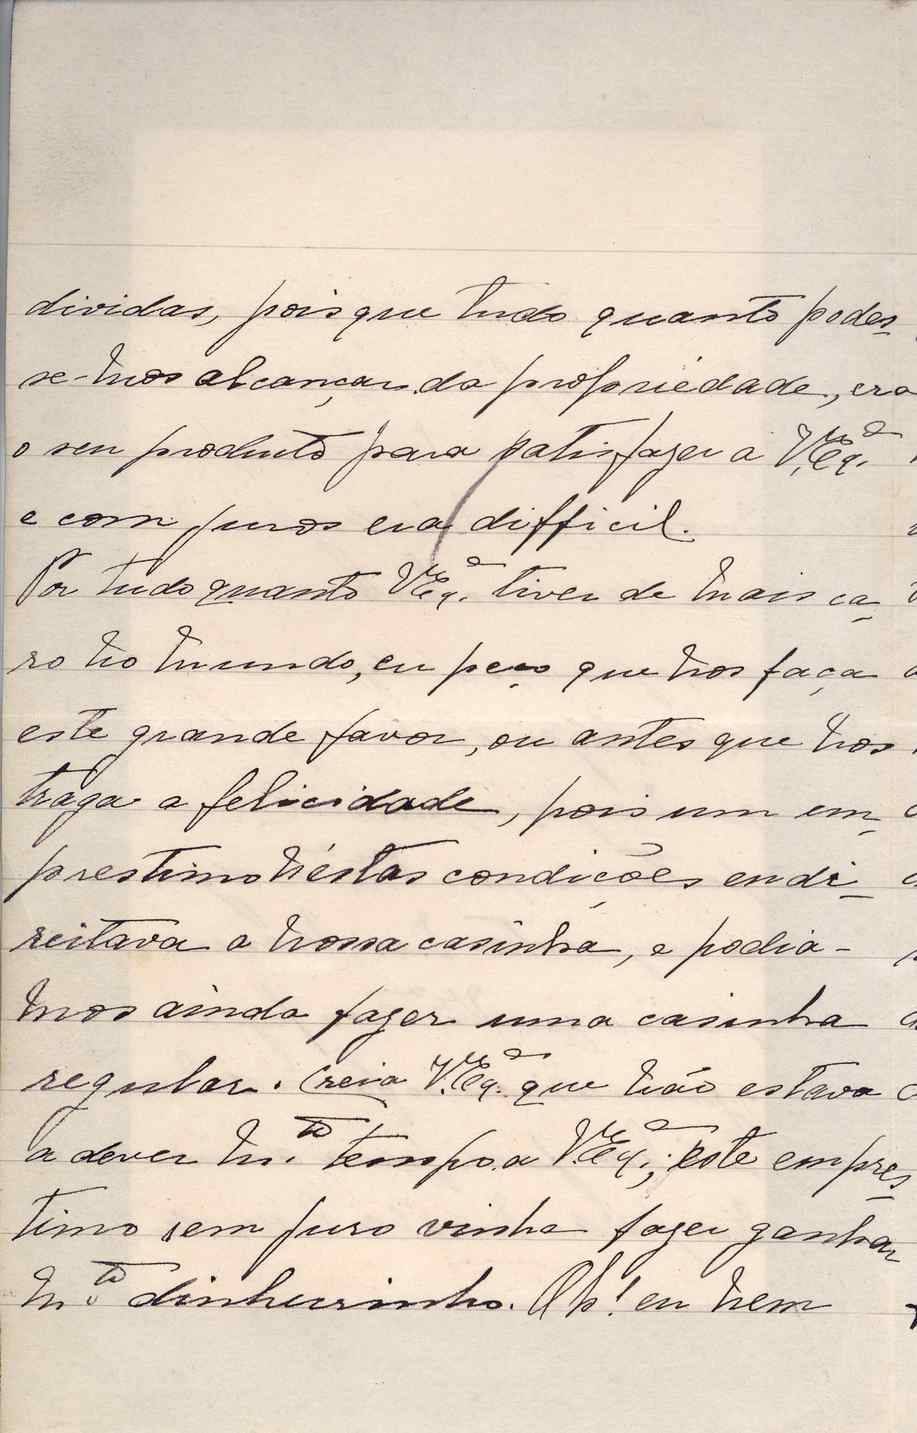 dividas, pois que tudo quanto podes-
se-mos alcançar da propriedade, era
o seu producto para satisfazer a V. Exª.
e com juros era difficil.
Por tudo quanto V Exª. tiver de mais ca-
ro no mundo, eu peço que nos faça
este grande favor, ou antes que nos
traga a felicidade, pois um em-
prestimo n'éstas condições endi-
reitava a nossa casinha, e podia-
mos ainda fazer uma casinha
regular. Creia V. Exª. que não estava
a dever m.to tempo a V. Exª.; este empres-
timo sem juro vinha fazer ganhar
m.to dinheirinho. Oh! eu nem